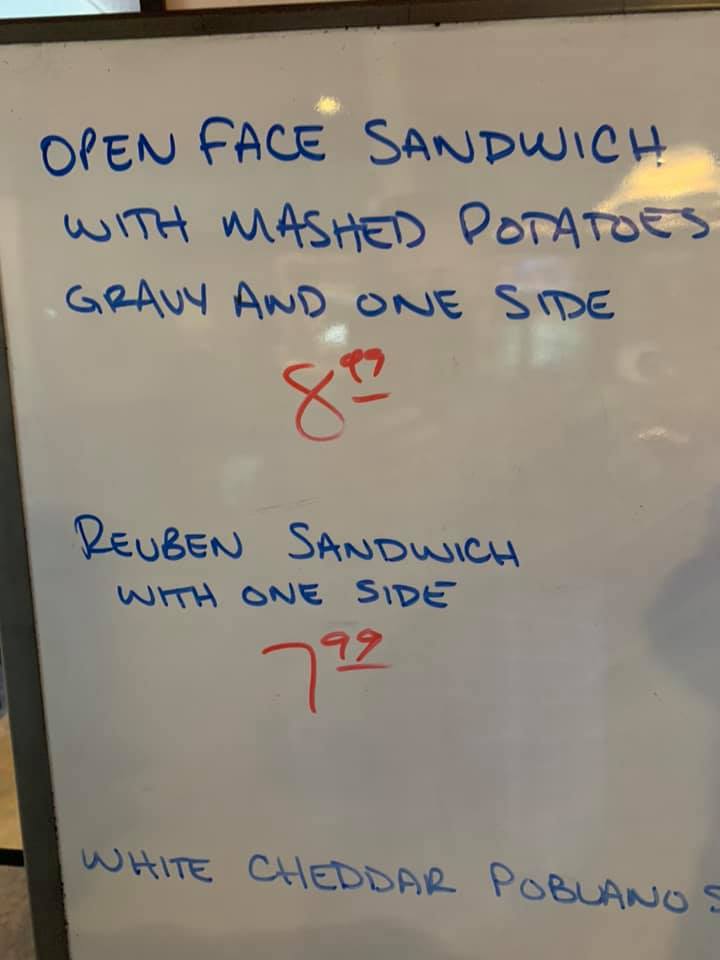 OPEN FACE SANDWICH
WITH MASHED POTATOES
GRAVY AND ONE SIDE
8 99
REUBEN SANDWICH
WITH ONE SIDE
7 99
WHITE CHEDDAR POBLANO S